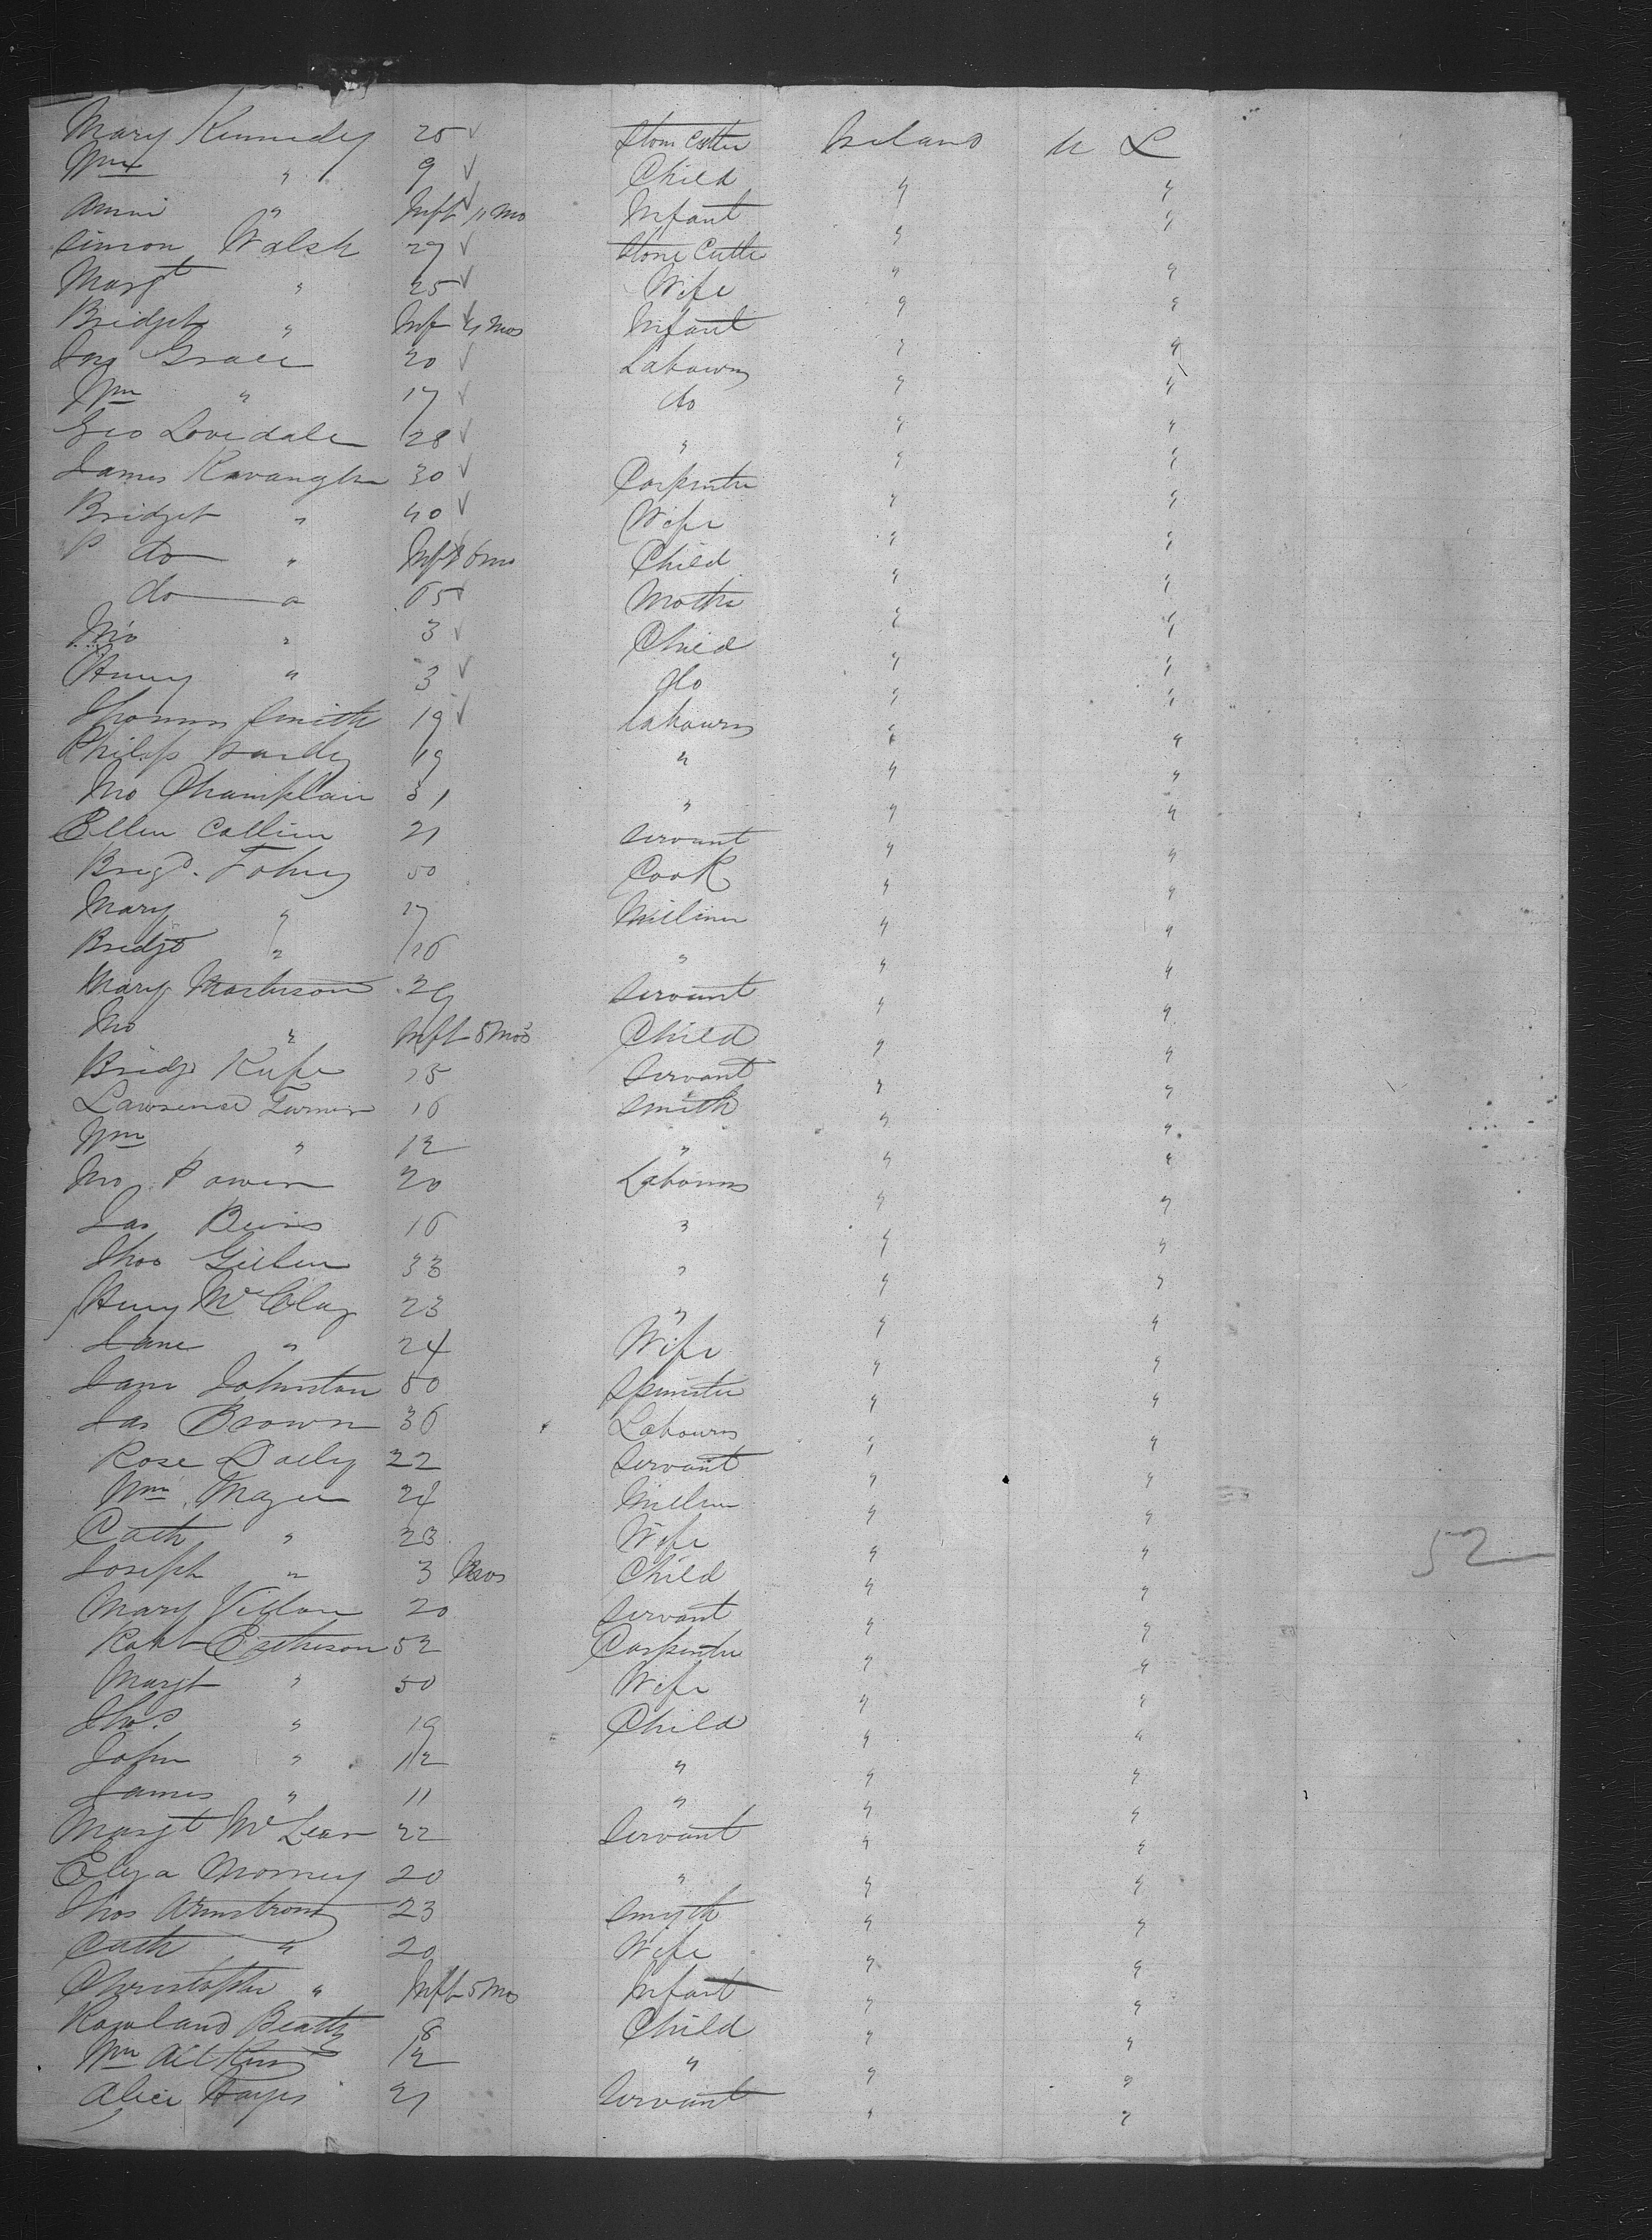 Mary Kennedy 25 Stone Cutter Ireland U S
Wm " 9 Child " "
Anni " Inft 11 Mo Infant " "
Simon Walsh 27 Stone Cutte " "
Margt " 25 Wife " "
Bridget " Inf 4 Mos Infant " "
Jas Grace 20 Labourer " "
Wm " 17 do " "
Geo Lovedale 28 " " "
James Kavangh 30 Carpenter " "
Bridget " 40 Wife " "
P do " Inft 6 mo Child " "
do " 65 Mother " "
Jno " 3 Child " "
Henry " 3 do " "
Thomas Smith 19 Labourer " "
Philip 19 " " "
Jno Champlain 31 " " "
Ellen Collier 21 Servant " "
Brigd. Fohey 50 Cook " "
Mary " 17 Milliner " "
Bridgt " 16 " " "
Mary Masterson 29 Servant " "
Jno " Inft 5 Mos Child " "
Bridgt 15 Servant " "
Lawrence Turner 16 Smith " "
Wm " 12 " " "
Jno Power 20 Labourer " "
Jas 16 " " "
Thos 33 " " "
Henry McClay 23 " " "
Jane " 24 Wife " "
Jane Johnston 50 Spinster " "
Jas Brown 36 Labourer " "
Rose Daily 22 Servant " "
Wm Magee 24 " "
Cath " 23 Wife " "
Joseph " 3 Mos Child " "
Mary 20 Servant " "
Robt 52 Carpenter " "
Margt " 50 Wife " "
Thos " 19 Child " "
John " 12 " " "
James " 11 " " "
Margt McLean 22 Servant " "
Eliza 20 " " "
Thos Armstrong 23 Smyth " "
Cath " 20 Wife " "
Christopher " Inft 5 Mo Infant " "
Rowland Beatty 8 Child " "
Wm Aitken 12 " " "
Alice Hayes 21 Servant " "
52